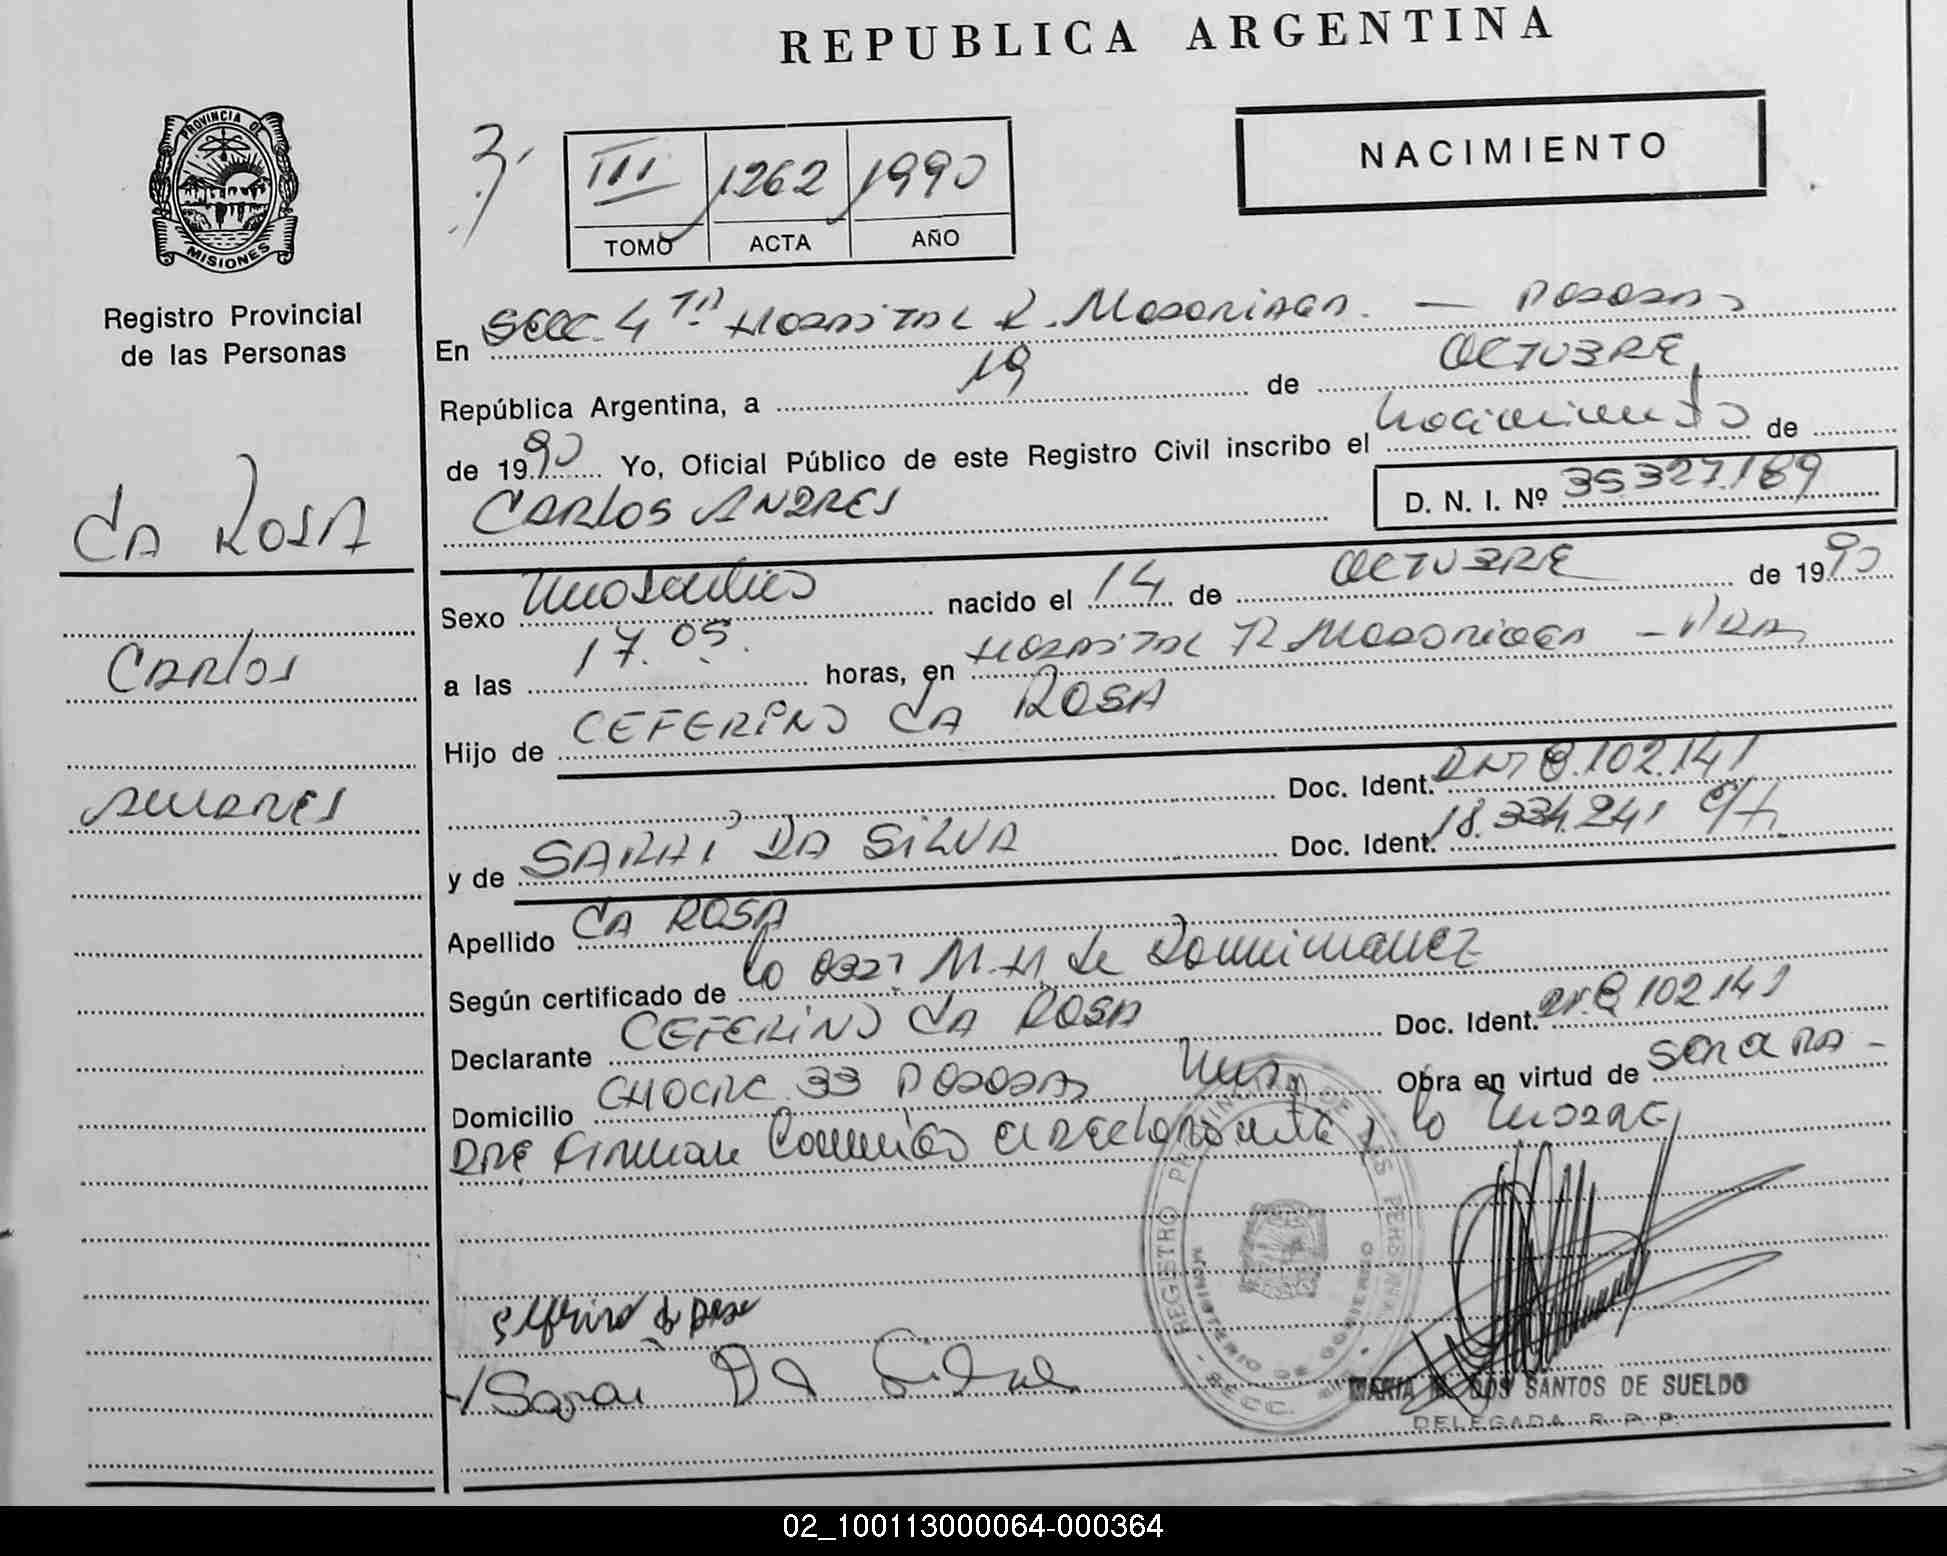 REPUBLICA ARGENTINA
PROVINCIA DE
MISIONES
Registro Provincial
de las Personas
III 1262 1990
TOMO ACTA AÑO
NACIMIENTO
En SECC. 4 TA HOSPITAL R. MADARIAGA - POSADAS
República Argentina, a 19 de OCTUBRE
de 1990 Yo, Oficial Público de este Registro Civil inscribo el nacimiento de
CARLOS ANDRES D. N. I. Nº 35327.189
DA ROSA
CARLOS
ANDRES
Sexo masculino nacido el 14 de OCTUBRE de 1990
a las 17.05. horas, en HOSPITAL R MADARIAGA -
Hijo de CEFERINO DA ROSA
Doc. Ident. DNI 8.102.141
y de SARAÍ DA SILVA Doc. Ident. 18.334.241
Apellido DA ROSA
Según certificado de la M. de
Declarante CEFERINO DA ROSA Doc. Ident. 8 102 141
Domicilio 33 POSADAS Obra en virtud de
firman el declarante y la madre
REGISTRO PROVINCIAL DE LAS PERSONAS
MINISTERIO DE GOBIERNO
SECC.
Sarai Da Silva
MARIA DOS SANTOS DE SUELDO
DELEGADA R. P. P.
02_100113000064-000364